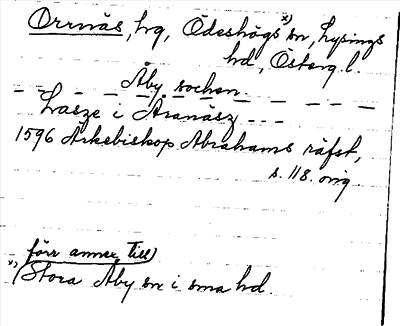 Orrnäs, hg, Ödeshögs x) sn, Lysings
hd, Österg. l.
Åby socken
Lasze i Åranäsz ---
1596 Ärkebiskop Abrahams räfst,
s. 118. orig
förr annex till
x) (Stora Åby sn i sma hd.